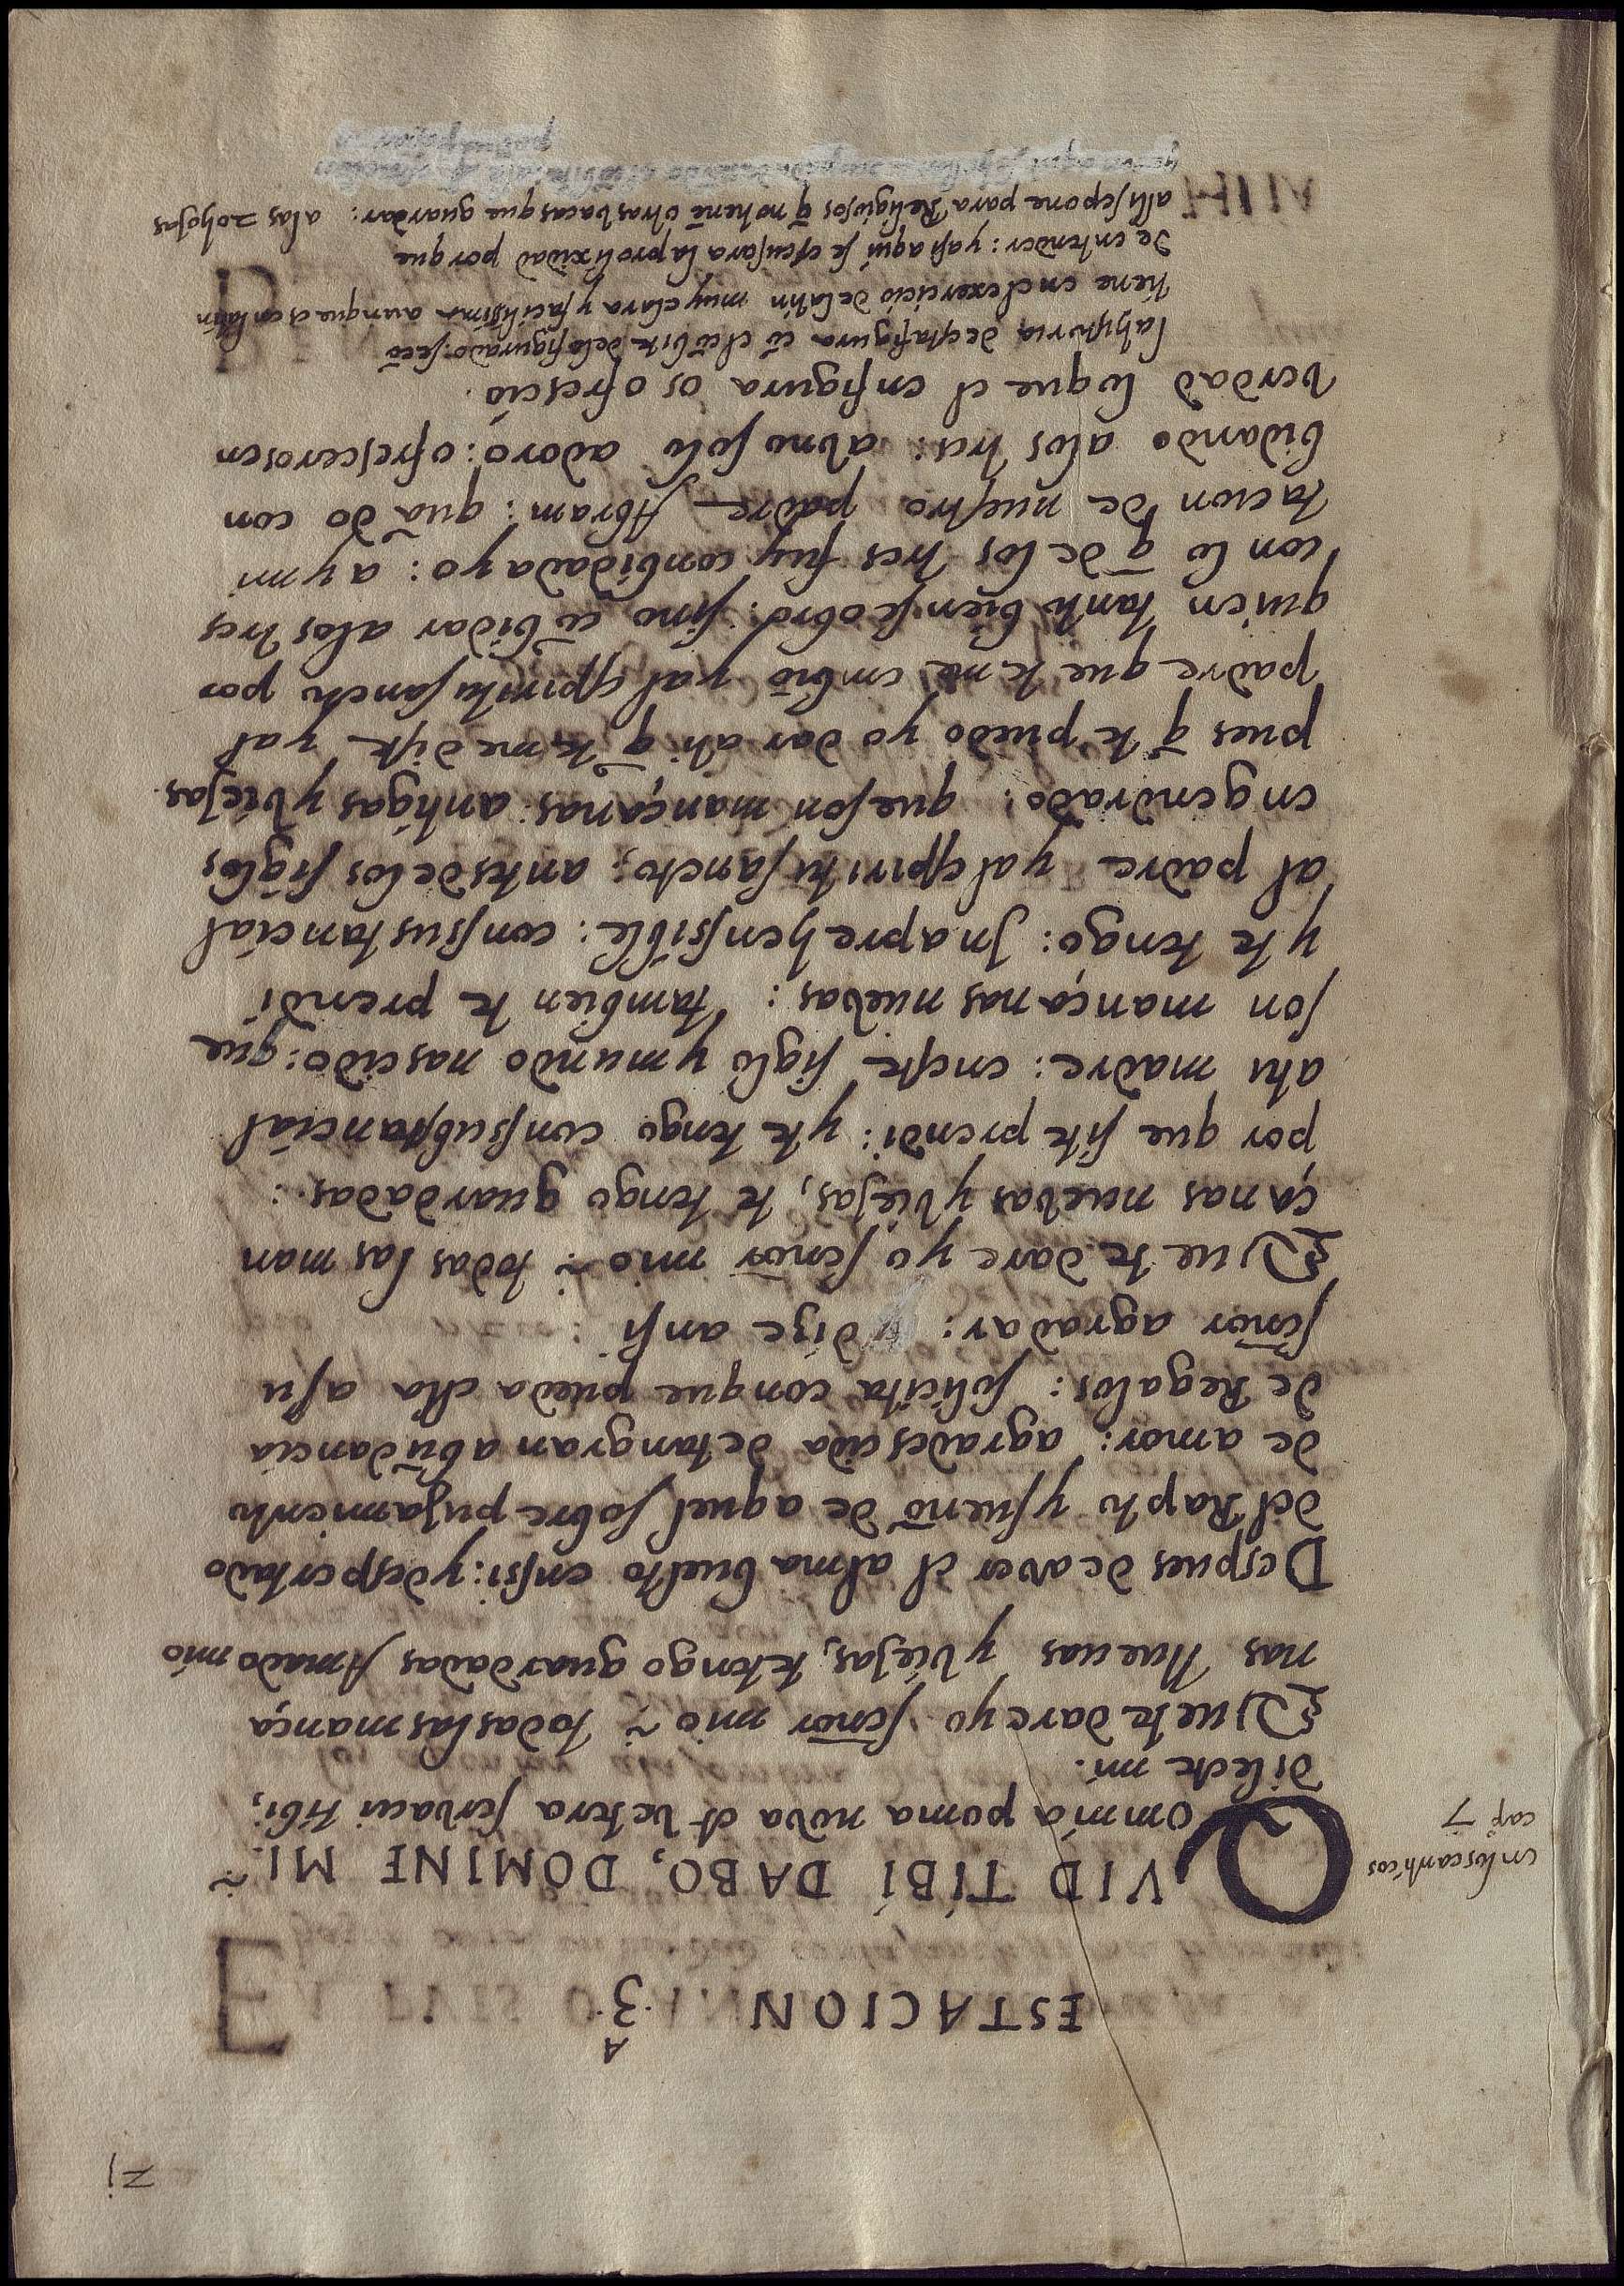 71
ESTACION .3.ᴬ
en los canticos
cap̊ 7
QVID TIBI DABO, DOMINE MI.~
omnia poma nova et vetera servaui tibi,
dilecte mi.
Que te dare yo señor mio ~ todas las mança
nas Nuevas y viejas, te tengo guardadas Amado mio
Despues de aver el alma buelto ensi: y despertado
del Rapto y sueño de aquel sobre pujamiento
de amor: agradescida de tangran abūdancia
de Regalos: solicita conque pueda ella asu
señor agradar: dize ansi :
Que te dare yo señor mio ~ todas las man
çanas nuevas y viejas, te tengo guardadas:
por que site prendi: y te tengo consubstancial
ati madre: eneste siglo y mundo nascido: que
son mançanas nuevas: tambien te prendi
y te tengo: Jnaprehensible: consustancial
al padre y al espiritu sancto; antes de los siglos
engendrado: que son mançanas antigas y viejas.
pues q̄ te puedo yo dar ati q̄ te me diste y al
padre que te me embió y al espiritu sancto por
quien tanto bien se obro: sino cōbidar alos tres
con lo q̄ de los tres fuy combidada yo: a ymi
tacion de nuestro padre Abram: quādo con
bidando alos tres: abno solo adoro: ofrescerosen
verdad loque el enfigura os ofrescio.
la hystoria de esta figura cō el cōbite delo figurado: secō
tiene enel exercicio de latin muy clara y facilissima aunque es en latin
de entender: y asi aqui se escusara la prolixidad por que
alli se pone para Religiosos q̄ no tienē otras bacas que guardar: a las 20 hojas